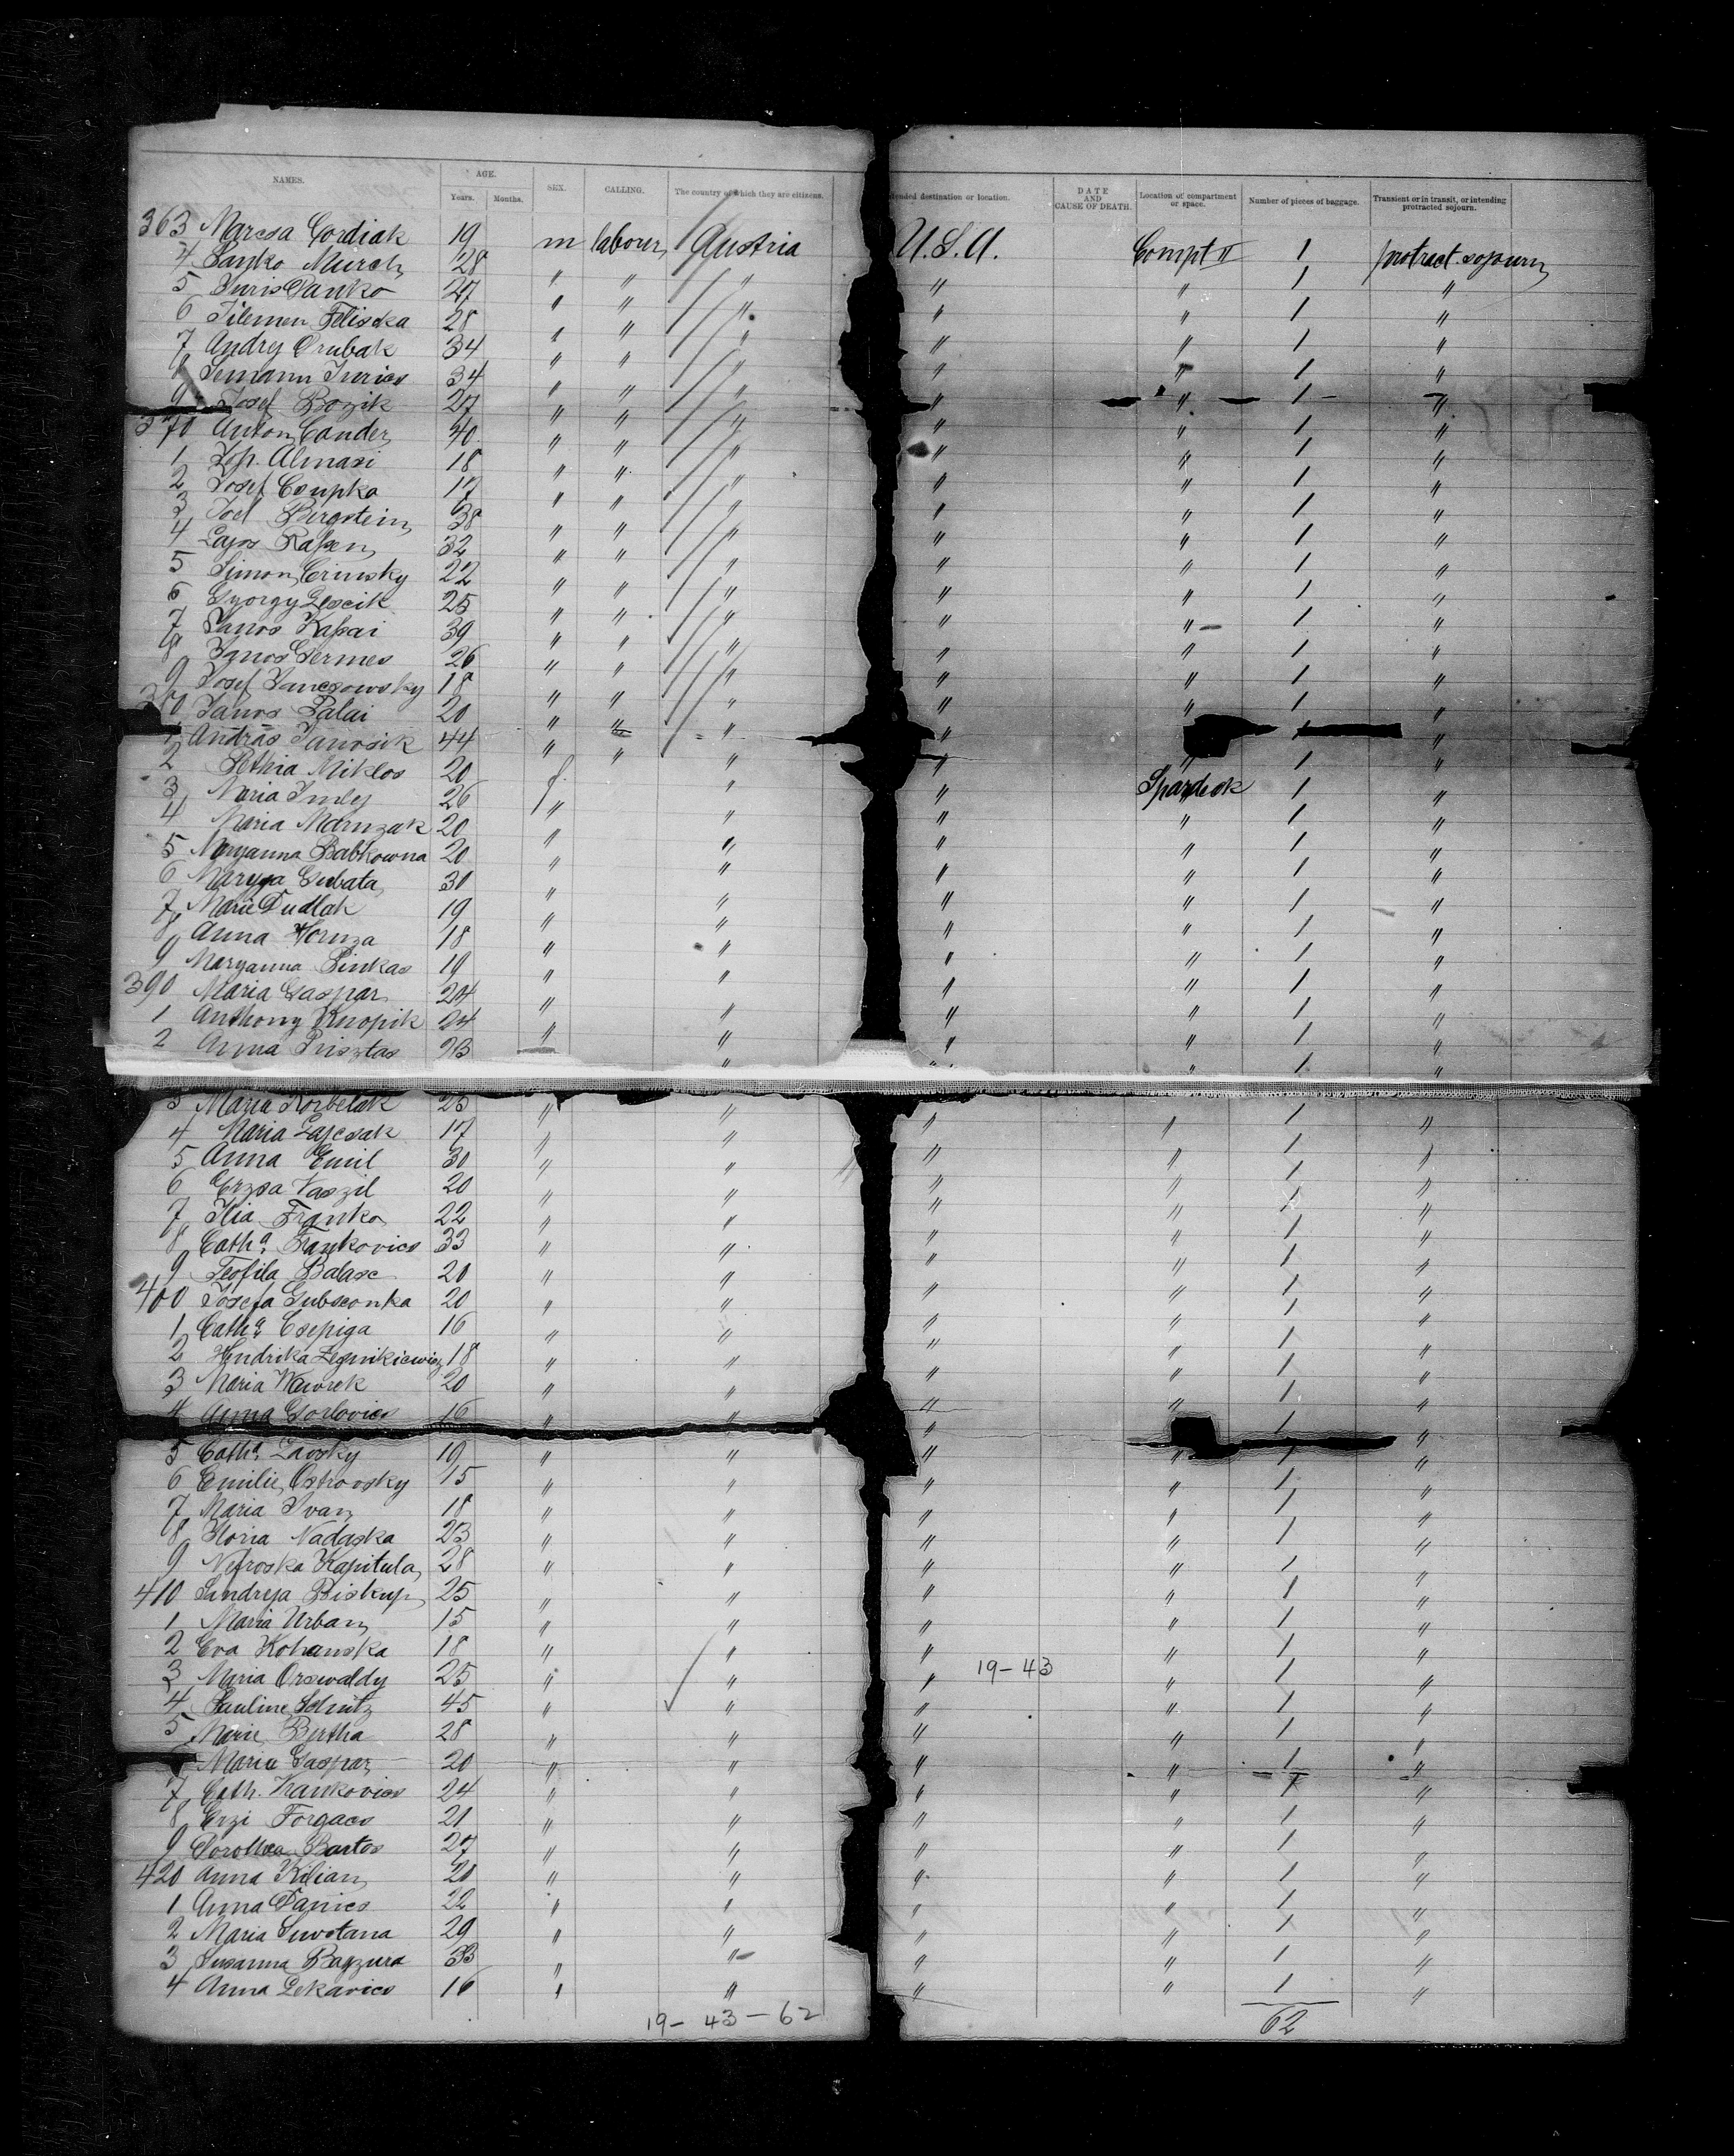 NAMES. AGE. Years. Months. SEX. CALLING. The country of which they are citizens. Intended destination or location. DATE AND CAUSE OF DEATH. Location of compartment or space. Number of pieces of baggage. Transient or in transit, or intending protracted sojourn.
363 Marcsa Gordiak 19 m labour Austria U.S.A. Compt II 1 protract. sojourn
4 Janko Murch 28 " " " " " 1 "
5 Juris Janko 27 " " " " " 1 "
6 Filemen Feliscka 28 " " " " " 1 "
7 Andrej Drubak 34 " " " " " 1 "
8 Simann Jurics 34 " " " " " 1 "
9 Josef Bozik 27 " " " " " 1 "
370 Anton Cander 40 " " " " " 1 "
1 Zsp. Almasi 18 " " " " " 1 "
2 Josef Csupka 17 " " " " " 1 "
3 Joel Bergstein 38 " " " " " 1 "
4 Lajos 32 " " " " " 1 "
5 Simon Crinsky 22 " " " " " 1 "
6 Gyorgy Lescik 25 " " " " " 1 "
7 Janos Kassai 39 " " " " " 1 "
8 Janos Germes 26 " " " " " 1 "
9 Josef Jancsowsky 18 " " " " " 1 "
Janos Palai 20 " " " " " 1 "
1 András Janosik 44 " " " " " 1 "
2 Pethia Miklos 20 f. " " " 1 "
3 Maria Imly 26 " " " Spardeck 1 "
4 Maria Manzak 20 " " " " 1 "
5 Maryanna Babkowna 20 " " " " 1 "
6 Maryga Gubata 30 " " " " 1 "
7 Marie Dudlak 19 " " " " 1 "
8 Anna Hornza 18 " " " " 1 "
9 Maryanna Pinkas 19 " " " " 1 "
390 Maria Gaspar 24 " " " " 1 "
1 Anthony Knopik 24 " " " " 1 "
2 Anna Prisztas 23 " " " " 1 "
3 Maria Korbelak 25 " " " " 1 "
4 Maria Lajcsak 17 " " " " 1 "
5 Anna Emil 30 " " " " 1 "
6 Erzsa Vaszil 20 " " " " 1 "
7 Ilia Franko 22 " " " " 1 "
8 Cath.a Frankovics 33 " " " " 1 "
9 Teofila Balasc 20 " " " " 1 "
400 Josefa Gubsconka 20 " " " " 1 "
1 Cath.a Csepiga 16 " " " " 1 "
2 Hendrika Legnikiewicz 18 " " " " 1 "
3 Maria Wawrek 20 " " " " 1 "
4 Anna Gorlovics 16 " " " " 1 "
5 Cath.a Lavsky 19 " " " " 1 "
6 Emilie Ostrovsky 15 " " " " 1 "
7 Maria Ivan 18 " " " " 1 "
8 Ilona Nadaska 23 " " " " 1 "
9 Nefroska Kapitula 28 " " " " 1 "
410 Sandreja Biskup 25 " " " " 1 "
1 Maria Urban 15 " " " " 1 "
2 Eva Kohanska 18 " " " " 1 "
3 Maria Orswaldy 25 " " " 19-43 " 1 "
4 Pauline Schutz 45 " " " " 1 "
5 Marie Bertha 28 " " " " 1 "
Maria Gaspar 20 " " " " 1 "
7 Cath. Kankovics 24 " " " " 1 "
8 Erzi Forgacs 21 " " " " 1 "
9 Dorothea Bartos 27 " " " " 1 "
420 Anna Kilian 20 " " " " 1 "
1 Anna Danics 22 " " " " 1 "
2 Maria Suvotana 29 " " " " 1 "
3 Susanna Bagzura 33 " " " " 1 "
4 Anna Pekavics 16 " " " " 1 "
19- 43 - 62 62